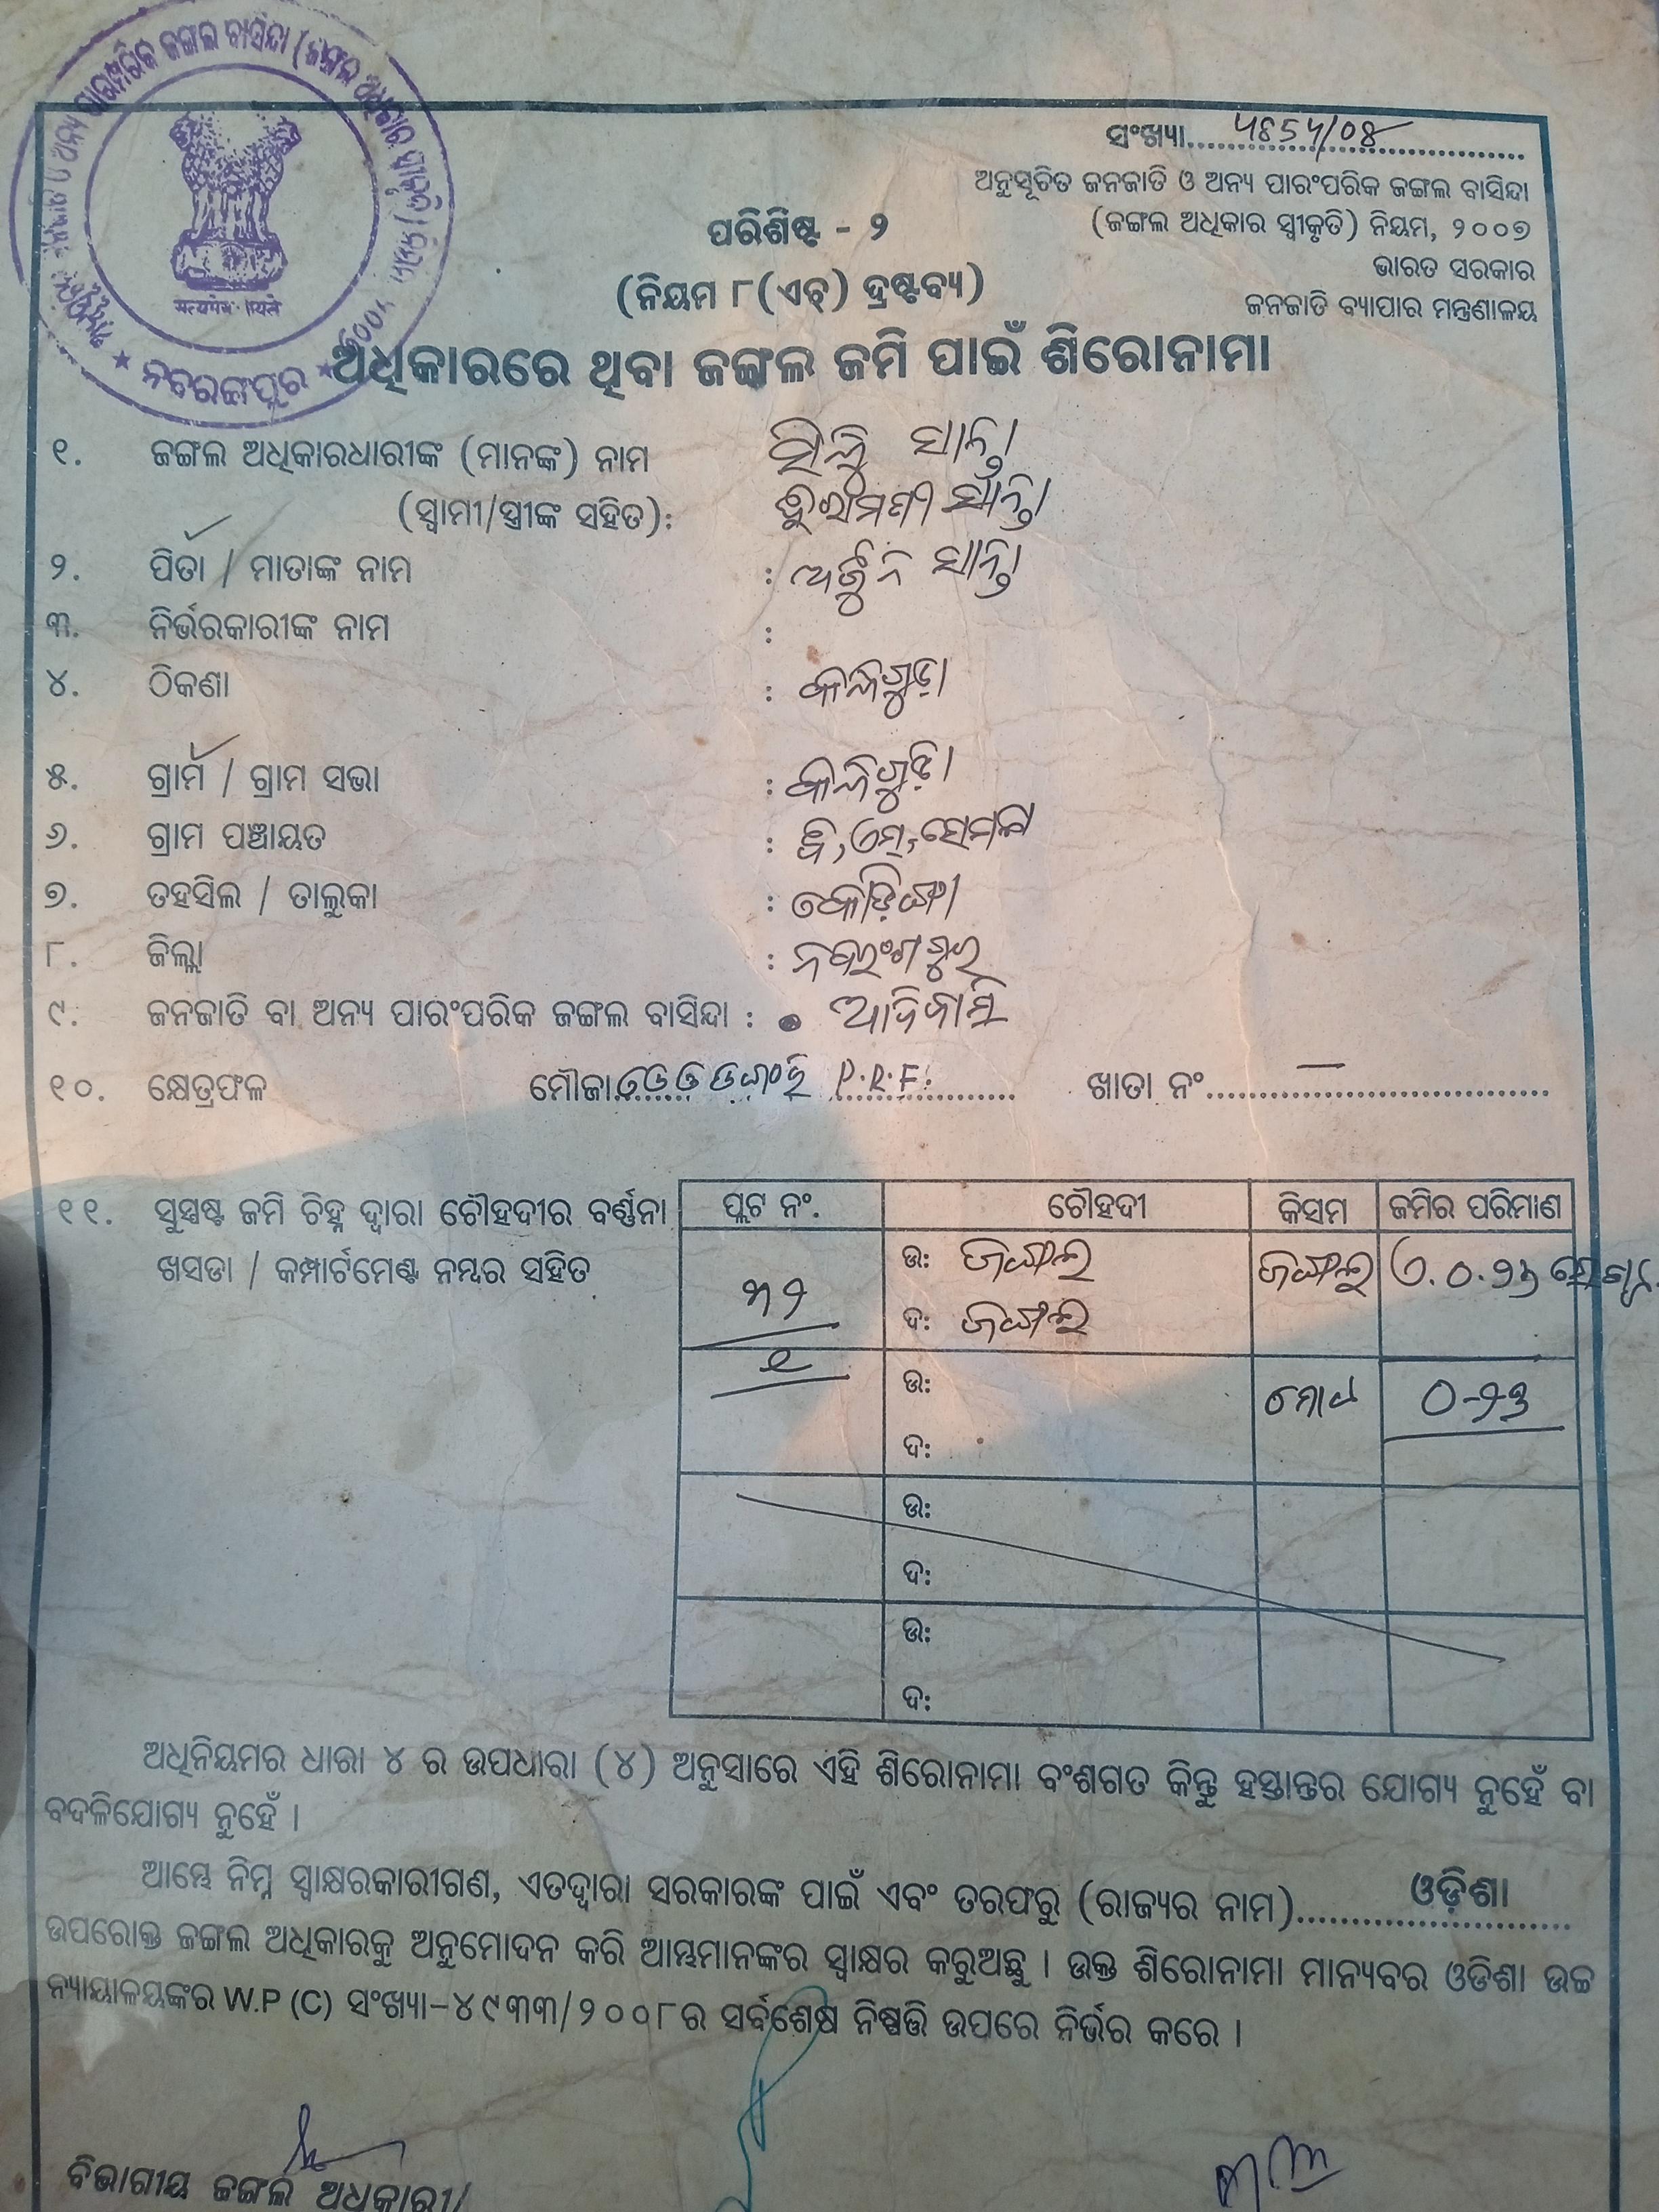 ସଂଖ୍ୟା
ଅନୁସୂଚିତ ଜନଜାତି ଓ ଅନ୍ୟ ପାରଂପରିକ ଜଙ୍ଗଲ ବାସିନ୍ଦା
(ଜଙ୍ଗଲ ଅଧିକାର ସ୍ୱୀକୃତି) ନିୟମ, ୨୦୦୭
ଭାରତ ସରକାର
ଜନଜାତି ବ୍ୟାପାର ମନ୍ତ୍ରଣାଳୟ
ପରିଶିଷ୍ଟ - ୨
(ନିୟମ ୮(ଏଚ୍) ଦ୍ରଷ୍ଟବ୍ୟ)
सत्यमेव जयते
ନବରଙ୍ଗପୁର
ଅଧିକାରରେ ଥିବା ଜଙ୍ଗଲ ଜମି ପାଇଁ ଶିରୋନାମା
୧. ଜଙ୍ଗଲ ଅଧିକାରଧାରୀଙ୍କ (ମାନଙ୍କ) ନାମ
(ସ୍ୱାମୀ/ସ୍ତ୍ରୀଙ୍କ ସହିତ):
୨. ପିତା / ମାତାଙ୍କ ନାମ :
୩. ନିର୍ଭରକାରୀଙ୍କ ନାମ :
୪. ଠିକଣା :
୫. ଗ୍ରାମ / ଗ୍ରାମ ସଭା :
୬. ଗ୍ରାମ ପଞ୍ଚାୟତ :
୭. ତହସିଲ / ତାଲୁକା : କୋଡିଙ୍ଗା
୮. ଜିଲ୍ଲା : ନବରଂଗପୁର
୯. ଜନଜାତି ବା ଅନ୍ୟ ପାରଂପରିକ ଜଙ୍ଗଲ ବାସିନ୍ଦା : ଆଦିବାସି
୧୦. କ୍ଷେତ୍ରଫଳ ମୌଜା P.R.F. ଖାତା ନଂ
୧୧. ସୁସ୍ପଷ୍ଟ ଜମି ଚିହ୍ନ ଦ୍ୱାରା ଚୌହଦୀର ବର୍ଣ୍ଣନା
ଖସଡା / କମ୍ପାର୍ଟମେଣ୍ଟ ନମ୍ବର ସହିତ
ପ୍ଲଟ ନଂ. ଚୌହଦୀ କିସମ ଜମିର ପରିମାଣ
୩୨ ଉ: ଜଙ୍ଗଲ ଜଙ୍ଗଲ
ଦ: ଜଙ୍ଗଲ
୧ ଉ: ମୋଟ ୦-୨୬
ଦ:
ଉ:
ଦ:
ଉ:
ଦ:
ଅଧିନିୟମର ଧାରା ୪ ର ଉପଧାରା (୪) ଅନୁସାରେ ଏହି ଶିରୋନାମା ବଂଶଗତ କିନ୍ତୁ ହସ୍ତାନ୍ତର ଯୋଗ୍ୟ ନୁହେଁ ବା
ବଦଳିଯୋଗ୍ୟ ନୁହେଁ ।
ଆମ୍ଭେ ନିମ୍ନ ସ୍ୱାକ୍ଷରକାରୀଗଣ, ଏତଦ୍ୱାରା ସରକାରଙ୍କ ପାଇଁ ଏବଂ ତରଫରୁ (ରାଜ୍ୟର ନାମ) ଓଡ଼ିଶା
ଉପରୋକ୍ତ ଜଙ୍ଗଲ ଅଧିକାରକୁ ଅନୁମୋଦନ କରି ଆମ୍ଭମାନଙ୍କର ସ୍ୱାକ୍ଷର କରୁଅଛୁ । ଉକ୍ତ ଶିରୋନାମା ମାନ୍ୟବର ଓଡିଶା ଉଚ୍ଚ
ନ୍ୟାୟାଳୟଙ୍କର W.P (C) ସଂଖ୍ୟା-୪୯୩୩/୨୦୦୮ର ସର୍ବଶେଷ ନିଷ୍ପତ୍ତି ଉପରେ ନିର୍ଭର କରେ ।
ବିଭାଗୀୟ ଜଙ୍ଗଲ ଅଧିକାରୀ/